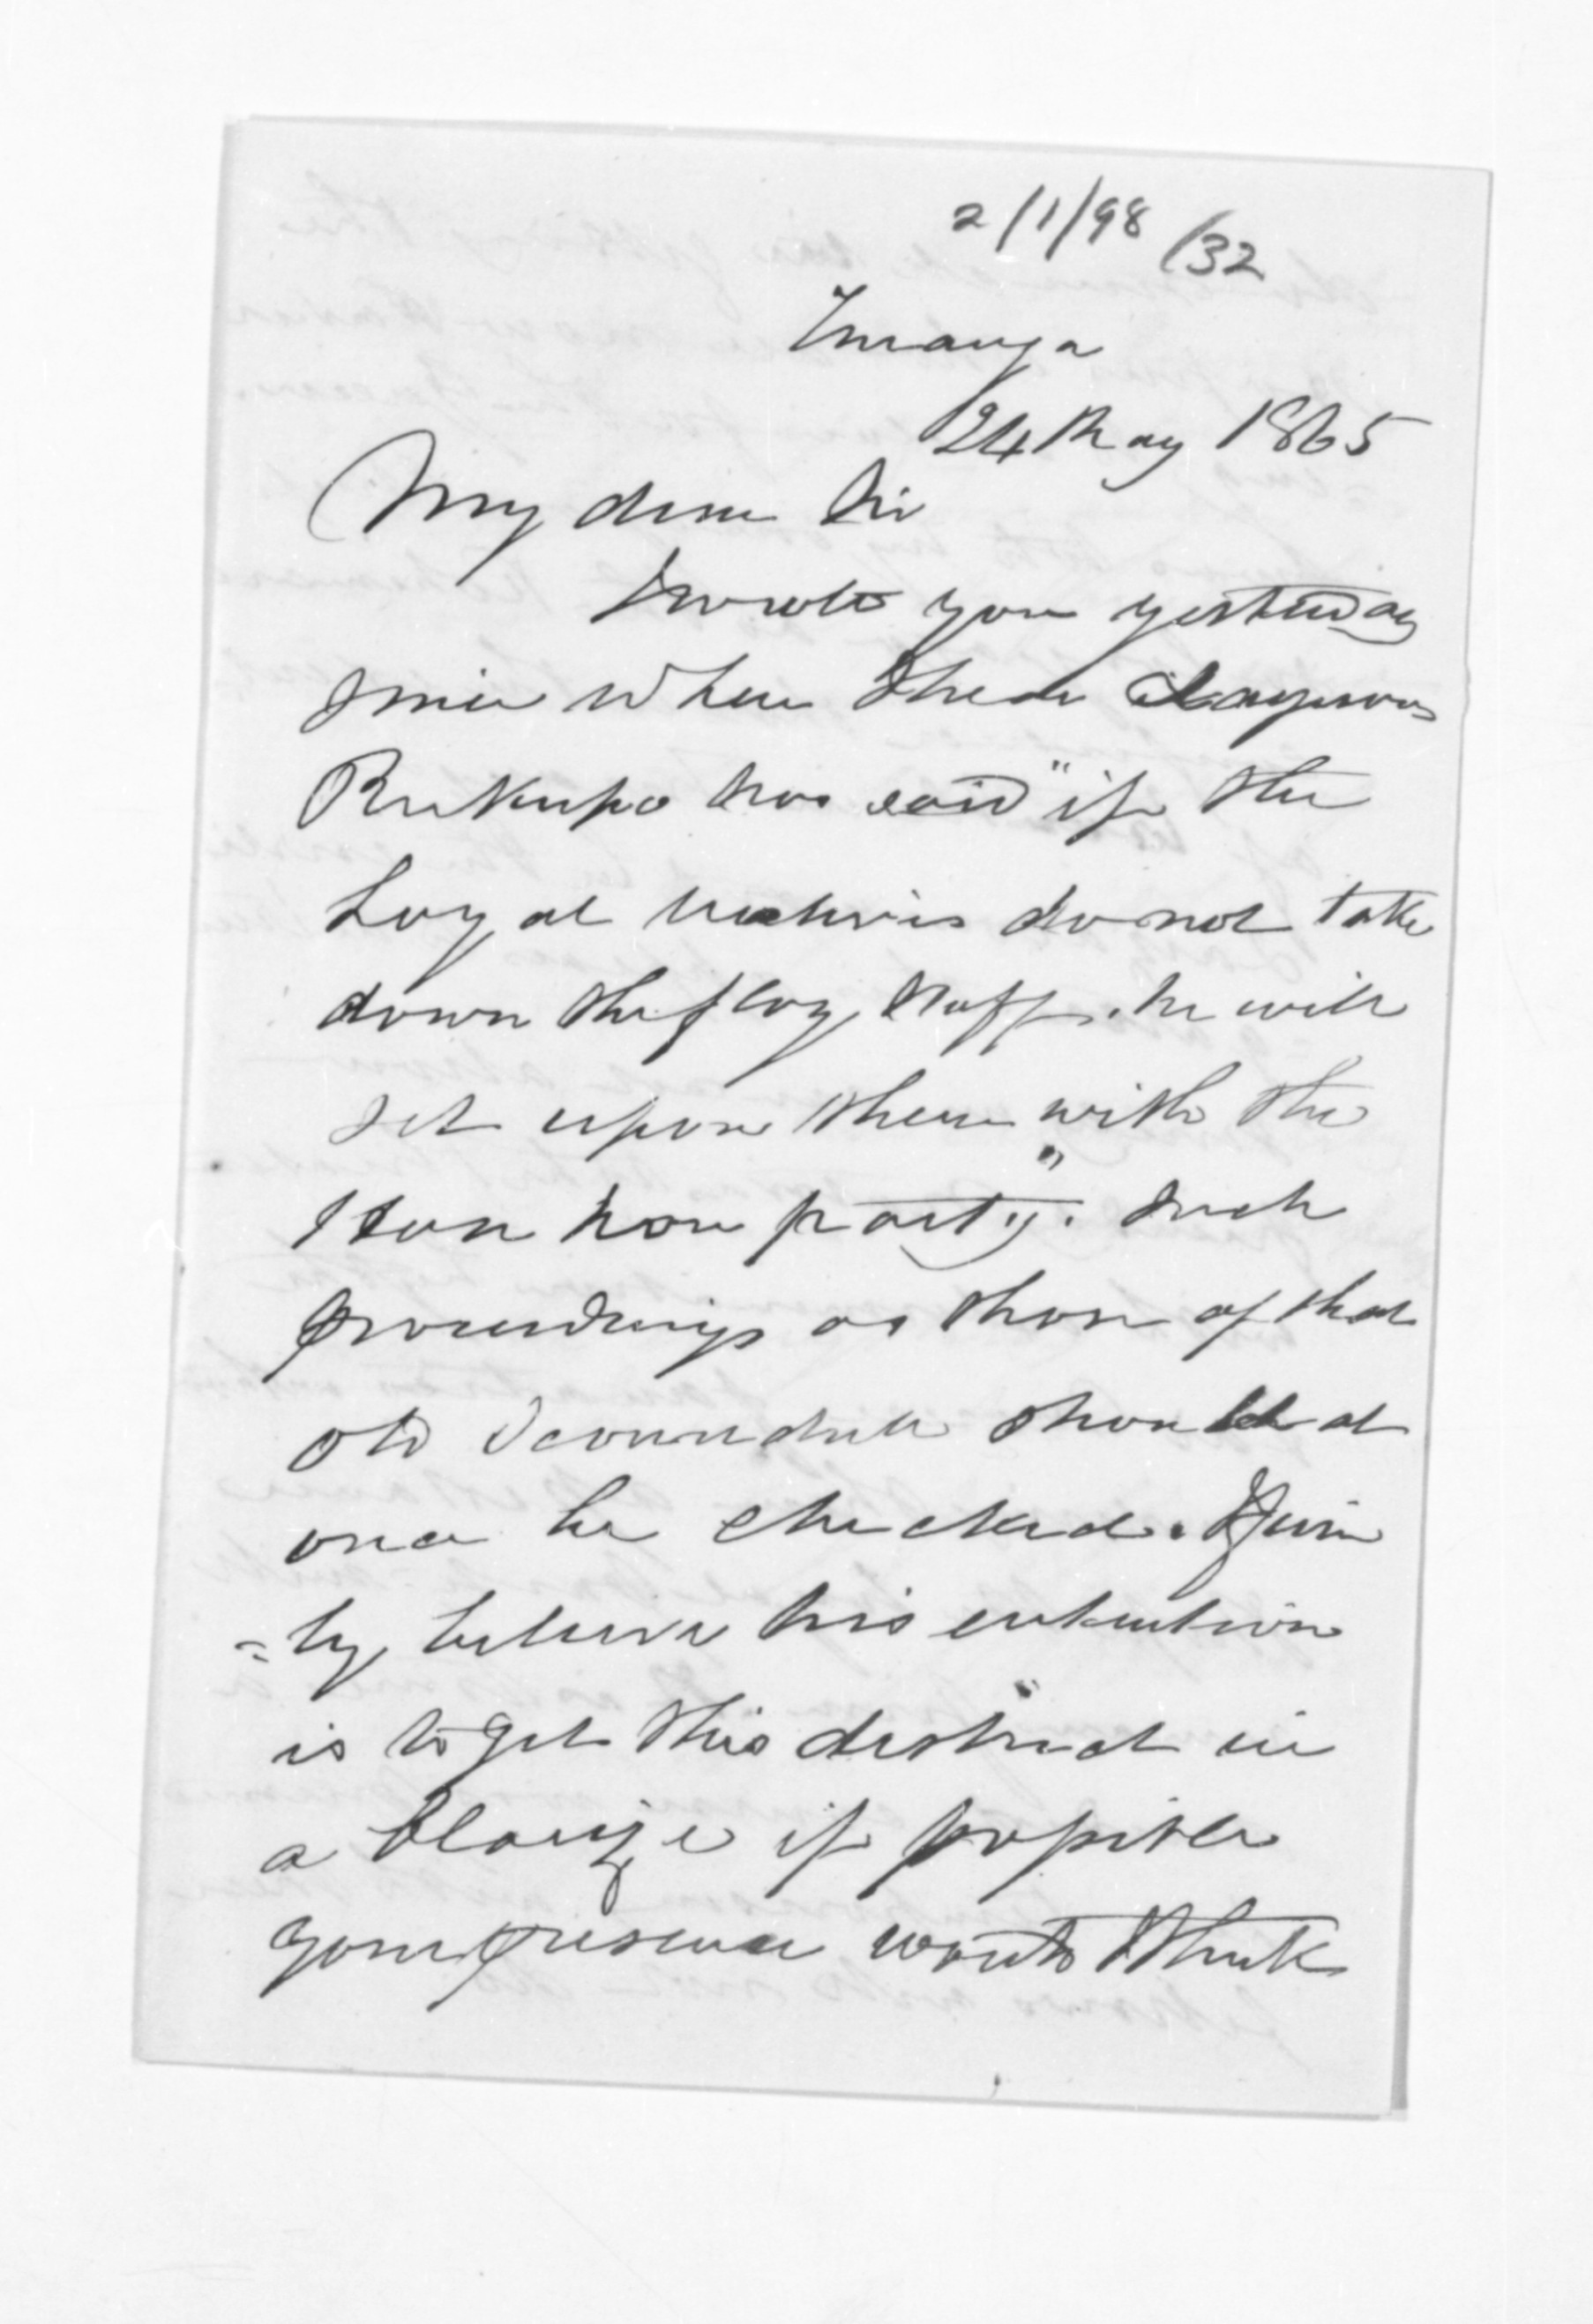 2/1/98 /32
Turanga
24 May 1865
My dear Sir
I wrote you yesterday
since when I hear
Rukupo has said "if the
Loyal natives do not take
down the flag staff. he will
set upon them with the
Hau hau party". Such
proceedings as those of that
old Scoundrell should at
once be checked. I firm
=ly believe his intention
is to get this district in
a blaize if possible
your presence would I think